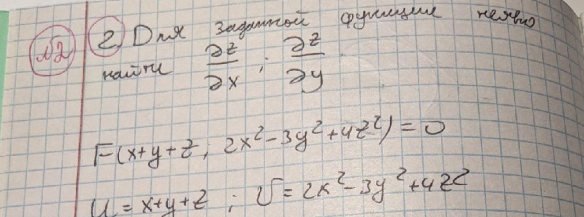 №2 2. Для заданной функции неявно
найти ∂z/∂x ; ∂z/∂y
F(x+y+z; 2x²-3y²+4z²)=0
U=x+y+z ; V=2x²-3y²+4z²